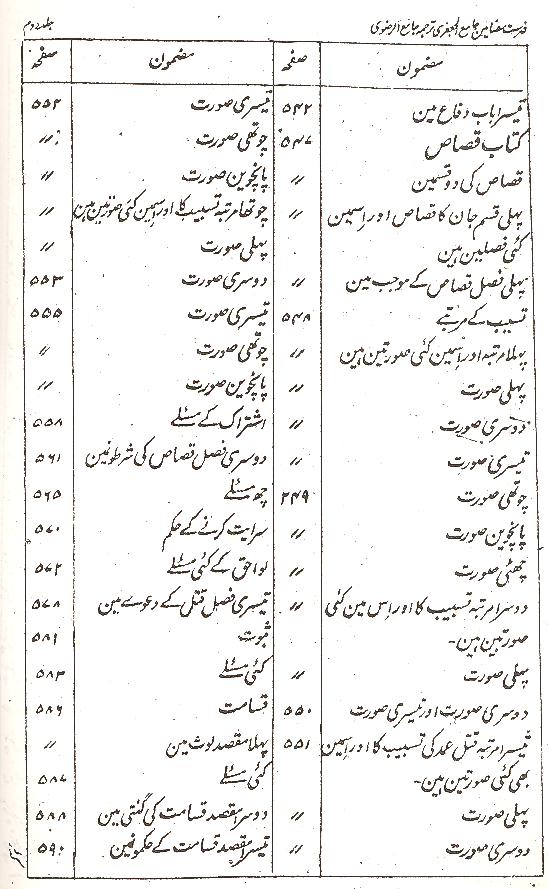 فہرست مضامین جامع الجعفری ترجمہ جامع الرضوی
جلد دوم
مضمون صفحہ مضمون صفحہ
تیسرا باب دفاع مین ۵۴۲
کتاب قصاص ۵۴۷
قصاص کی دو قسمین 〃
پہلی قسم جان کا قصاص اور اسمین 〃
کئی فصلین ہین
پہلی فصل قصاص کے موجب مین 〃
تسبیب کے مرتبے ۵۴۸
پہلا مرتبہ اور اسمین کئی صورتین ہین 〃
پہلی صورت 〃
دوسری صورت 〃
تیسری صورت 〃
چوتھی صورت ۲۴۹
پانچوین صورت 〃
چھٹی صورت 〃
دوسرا مرتبہ تسبیب کا اور اس مین کئی 〃
صورتین ہین۔
پہلی صورت 〃
دوسری صورت اور تیسری صورت ۵۵۰
تیسرا مرتبہ قتل عمد کی تسبیب کا اور اسمین ۵۵۱
بھی کئی صورتین ہین۔
پہلی صورت 〃
دوسری صورت 〃
تیسری صورت ۵۵۲
چوتھی صورت 〃
پانچوین صورت 〃
چوتھا مرتبہ تسبیب کا اور اسمین کئی صورتین ہین 〃
پہلی صورت 〃
دوسری صورت ۵۵۳
تیسری صورت ۵۵۵
چوتھی صورت 〃
پانچوین صورت 〃
اشتراک کے مسئلے ۵۵۸
دوسری فصل قصاص کی شرطونمین ۵۶۱
چھ مسئلے ۵۶۵
سرایت کرنے کے حکم ۵۷۰
لواحق کے کئی مسئلے ۵۷۲
تیسری فصل قتل کے دعوے مین ۵۷۸
ثبوت ۵۸۱
کئی مسئلے ۵۸۳
قسامت ۵۸۶
پہلا مقصد لوث مین 〃
کئی مسئلے ۵۸۷
دوسرا مقصد قسامت کی گنتی مین ۵۸۸
تیسرا مقصد قسامت کے حکمونمین ۵۹۰